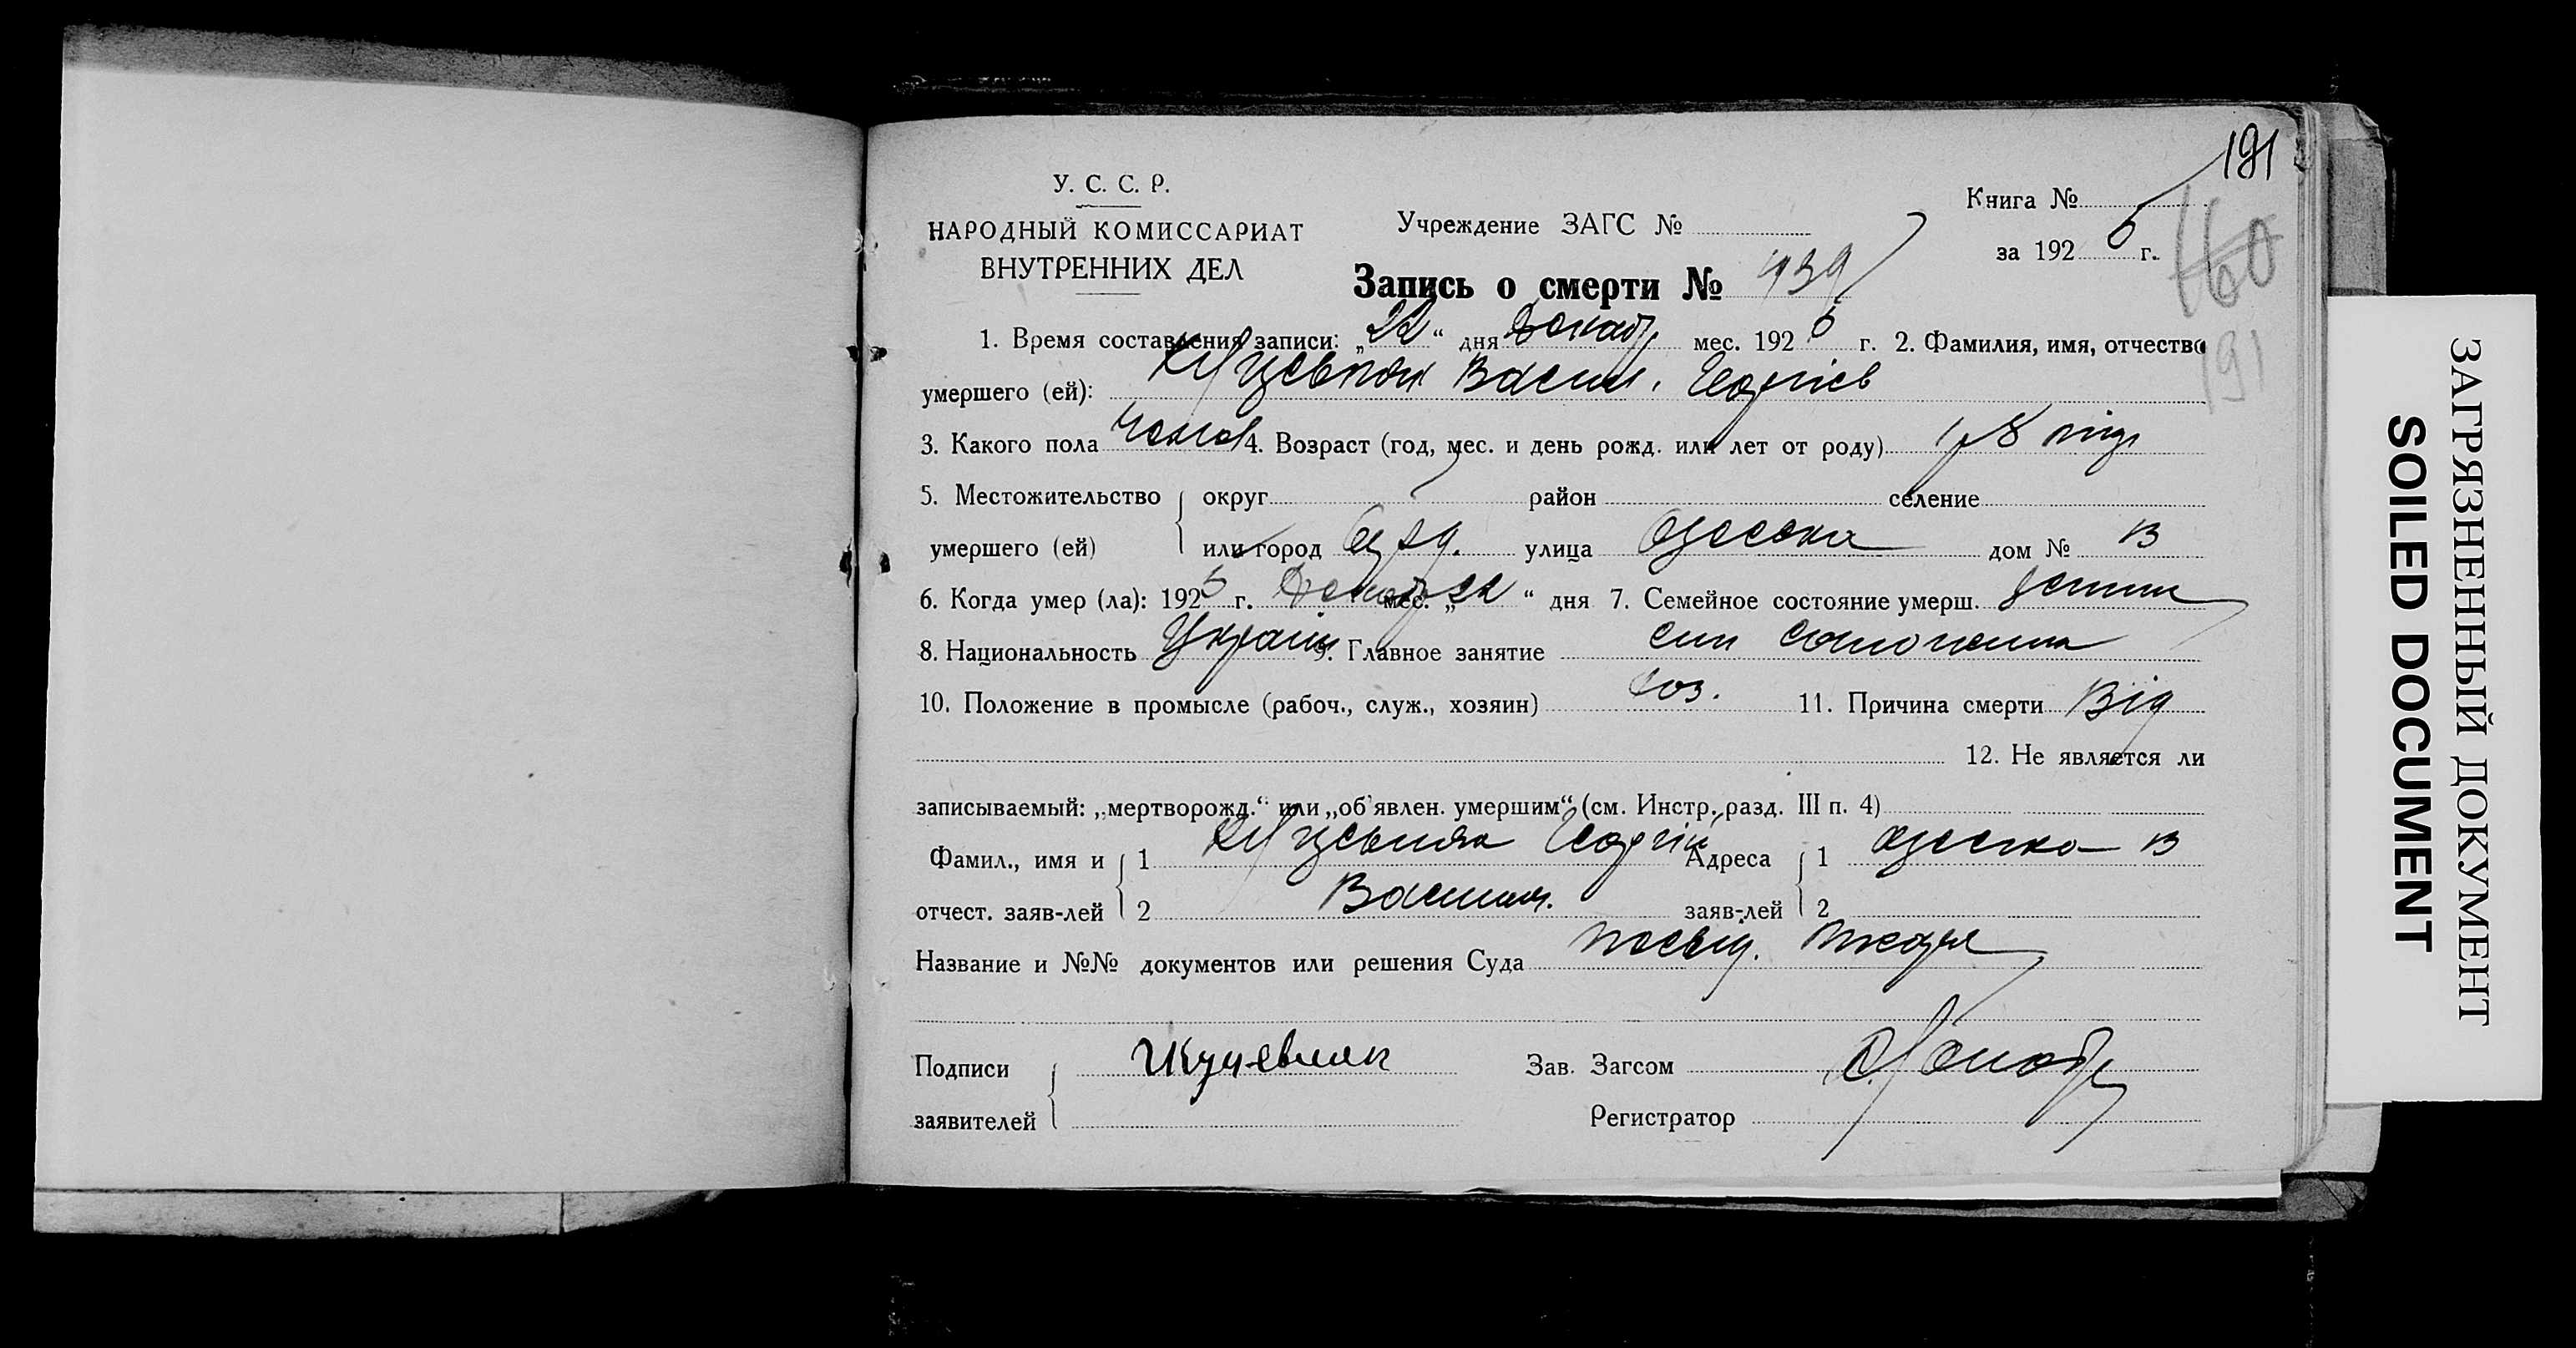 191
У. С. С. Р.
НАРОДНЫЙ КОМИССАРИАТ
ВНУТРЕННИХ ДЕЛ
Учреждение ЗАГС №
Книга №
за 192 5 г.
160
191
Запись о смерти № 939
1. Время составления записи: „22“ дня Декаб. мес. 192 5 г. 2. Фамилия, имя, отчество
умершего (ей): Васил. Георгіев
3. Какого пола чолов 4. Возраст (год, мес. и день рожд. или лет от роду)
5. Местожительство округ район селение
умершего (ей) или город улица Одеська дом № 13
6. Когда умер (ла): 192 5 г. Декабр мес. „22“ дня 7. Семейное состояние умерш.
8. Национальность Украин 9. Главное занятие син
10. Положение в промысле (рабоч., служ., хозяин) хоз. 11. Причина смерти Від
12. Не является ли
записываемый: „мертворожд.“ или „об'явлен. умершим“ (см. Инстр. разд. III п. 4)
Фамил., имя и 1 Георгій Адреса 1 Одеська 13
отчест. заяв-лей 2 Васильов. заяв-лей 2
Название и №№ документов или решения Суда посвід.
Подписи
Зав. Загсом
заявителей
Регистратор
ЗАГРЯЗНЕННЫЙ ДОКУМЕНТ
SOILED DOCUMENT